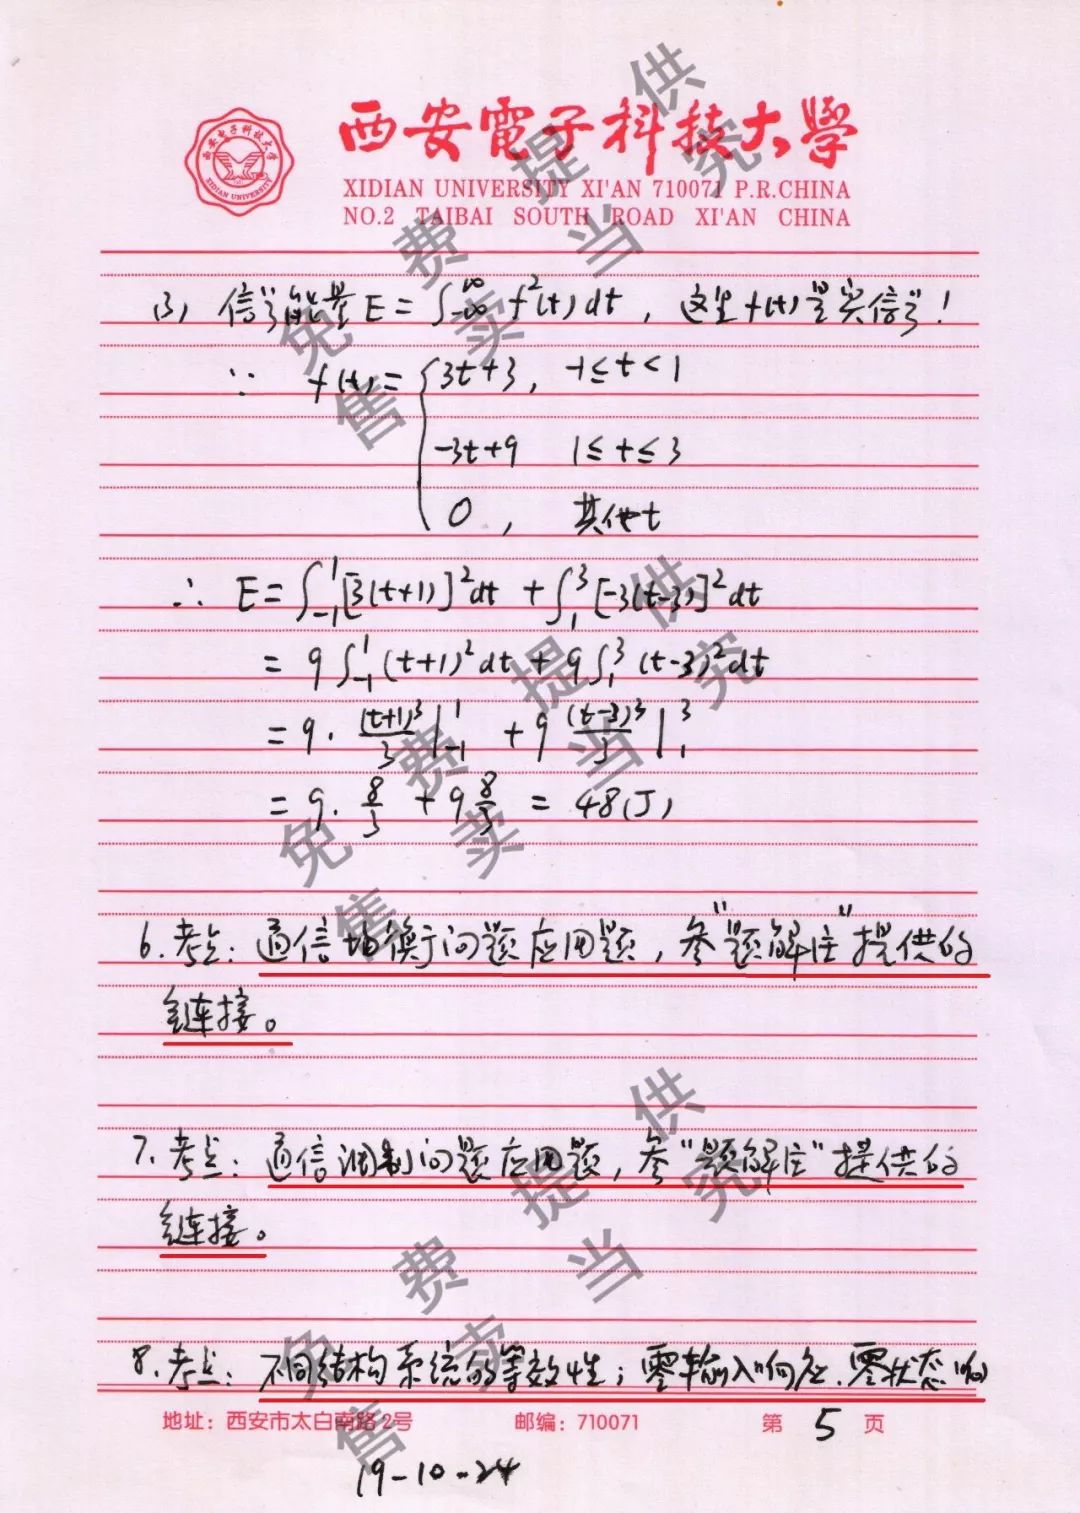 西安電子科技大學
XIDIAN UNIVERSITY XI'AN 710071 P.R.CHINA
NO.2 TAIBAI SOUTH ROAD XI'AN CHINA
(3) 信号能量 E = ∫_{-∞}^{∞} f²(t) dt , 这里 f(t) 是实信号!
∵ f(t) = { 3t+3, -1≤t<1
-3t+9 1≤t≤3
0, 其他t
∴ E = ∫_{-1}^{1} [3(t+1)]² dt + ∫_{1}^{3} [-3(t-3)]² dt
= 9 ∫_{-1}^{1} (t+1)² dt + 9 ∫_{1}^{3} (t-3)² dt
= 9 · (t+1)³/3 |_{-1}^{1} + 9 (t-3)³/3 |_{1}^{3}
= 9 · 8/3 + 9 8/3 = 48(J)
6. 考点: 通信均衡于问题应用题, 参"题解注"提供的
链接。
7. 考点: 通信调制问题应用题, 参"题解注"提供的
链接。
8. 考点: 不同结构系统的等效性; 零输入响应、零状态响
地址: 西安市太白南路2号 邮编: 710071 第 5 页
19-10-24
免费提供
售卖当究
免费提供
售卖当究
免费提供
售卖当究